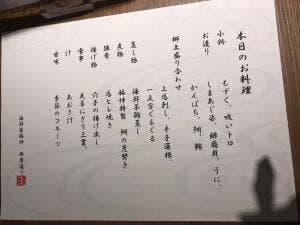 本日のお料理
小鉢　もずく、吸いトロ
しまあじ姿、帆廣貝、うに、
お造り　かんぱち、鯛、鮪
郷土盛り合わせ
上馬刺し、辛子蓮根、
一文字ぐるぐる
蒸し物　海鮮茶碗蒸し
煮物　福伸特製　鯛の荒焚き
組肴　馬ヒレ焼き
揚げ物　穴子の揚げ出し
食事　天草にぎり三貫
汁　あおさ汁
甘味　季節のフルーツ
海鮮茶福伸　銀座通り